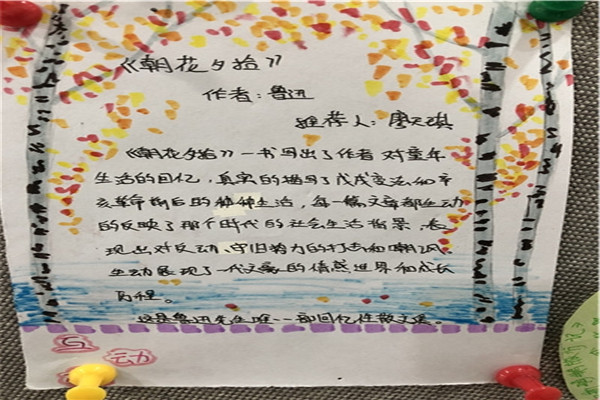 《朝花夕拾》
作者：鲁迅
推荐人：廖天琪
《朝花夕拾》一书写出了作者对童年
生活的回忆，真实的描写了戊戌变法和辛
亥革命前后的种种生活，每一篇文章都生动
的反映了那个时代的社会生活背景，表
现出对反动、守旧势力的打击和嘲讽。
生动展现了一代文豪的情感世界和成长
历程。
这是鲁迅先生唯一一部回忆性散文集。
动